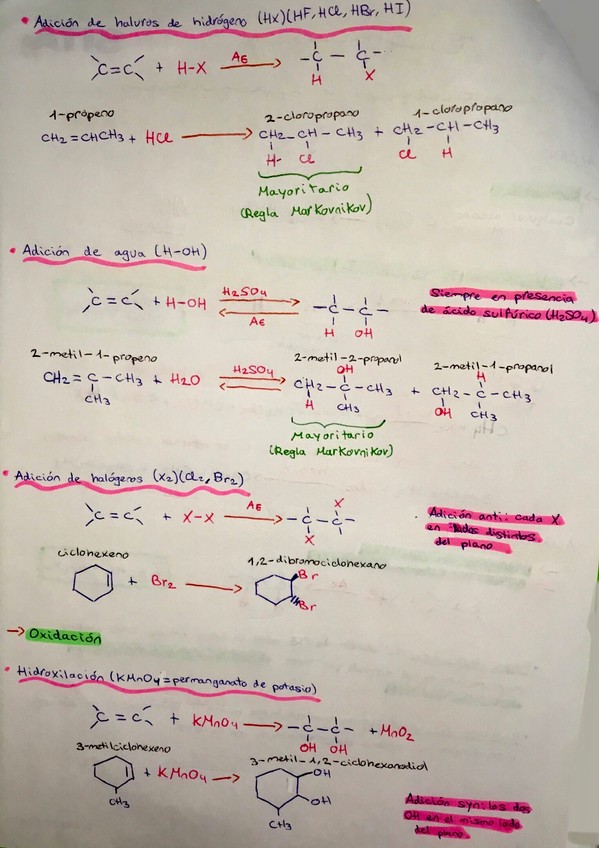 • Adición de haluros de hidrógeno (HX)(HF, HCl, HBr, HI)
C=C + H-X AE -C-C-
H X
1-propeno 2-cloropropano 1-cloropropano
CH2=CHCH3 + HCl CH2-CH-CH3 + CH2-CH-CH3
H- Cl Cl H
Mayoritario
(Regla Markovnikov)
• Adición de agua (H-OH)
C=C + H-OH H2SO4 -C-C-
AE
H OH
Siempre en presencia
de ácido sulfúrico (H2SO4)
2-metil-1-propeno 2-metil-2-propanol 2-metil-1-propanol
OH H
CH2=C-CH3 + H2O H2SO4 CH2-C-CH3 + CH2-C-CH3
CH3 H CH3 OH CH3
Mayoritario
(Regla Markovnikov)
• Adición de halógenos (X2)(Cl2, Br2)
X
C=C + X-X AE -C-C-
X
. Adición anti: cada X
en lados distintos
del plano
ciclohexeno 1,2-dibromociclohexano
+ Br2 Br
Br
→ Oxidación
• Hidroxilación (KMnO4 = permanganato de potasio)
C=C + KMnO4 -C-C- + MnO2
OH OH
3-metilciclohexeno 3-metil-1,2-ciclohexanodiol
+ KMnO4 OH
OH
CH3 CH3
Adición syn: los dos
OH en el mismo lado
del plano